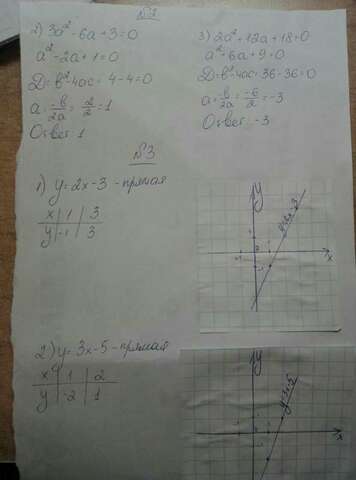 №2
2) 3a² - 6a + 3 = 0
a² - 2a + 1 = 0
D = b² - 4ac = 4 - 4 = 0
a = -b/2a = 2/2 = 1
Ответ: 1
3) 2a² + 12a + 18 = 0
a² + 6a + 9 = 0
D = b² - 4ac = 36 - 36 = 0
a = -b/2a = -6/2 = -3
Ответ: -3
№3
1) y = 2x - 3 - прямая
x | 1 | 3
y | -1 | 3
y
y=2x-3
x
2) y = 3x - 5 - прямая
x | 1 | 2
y | -2 | 1
y
y=3x-5
x